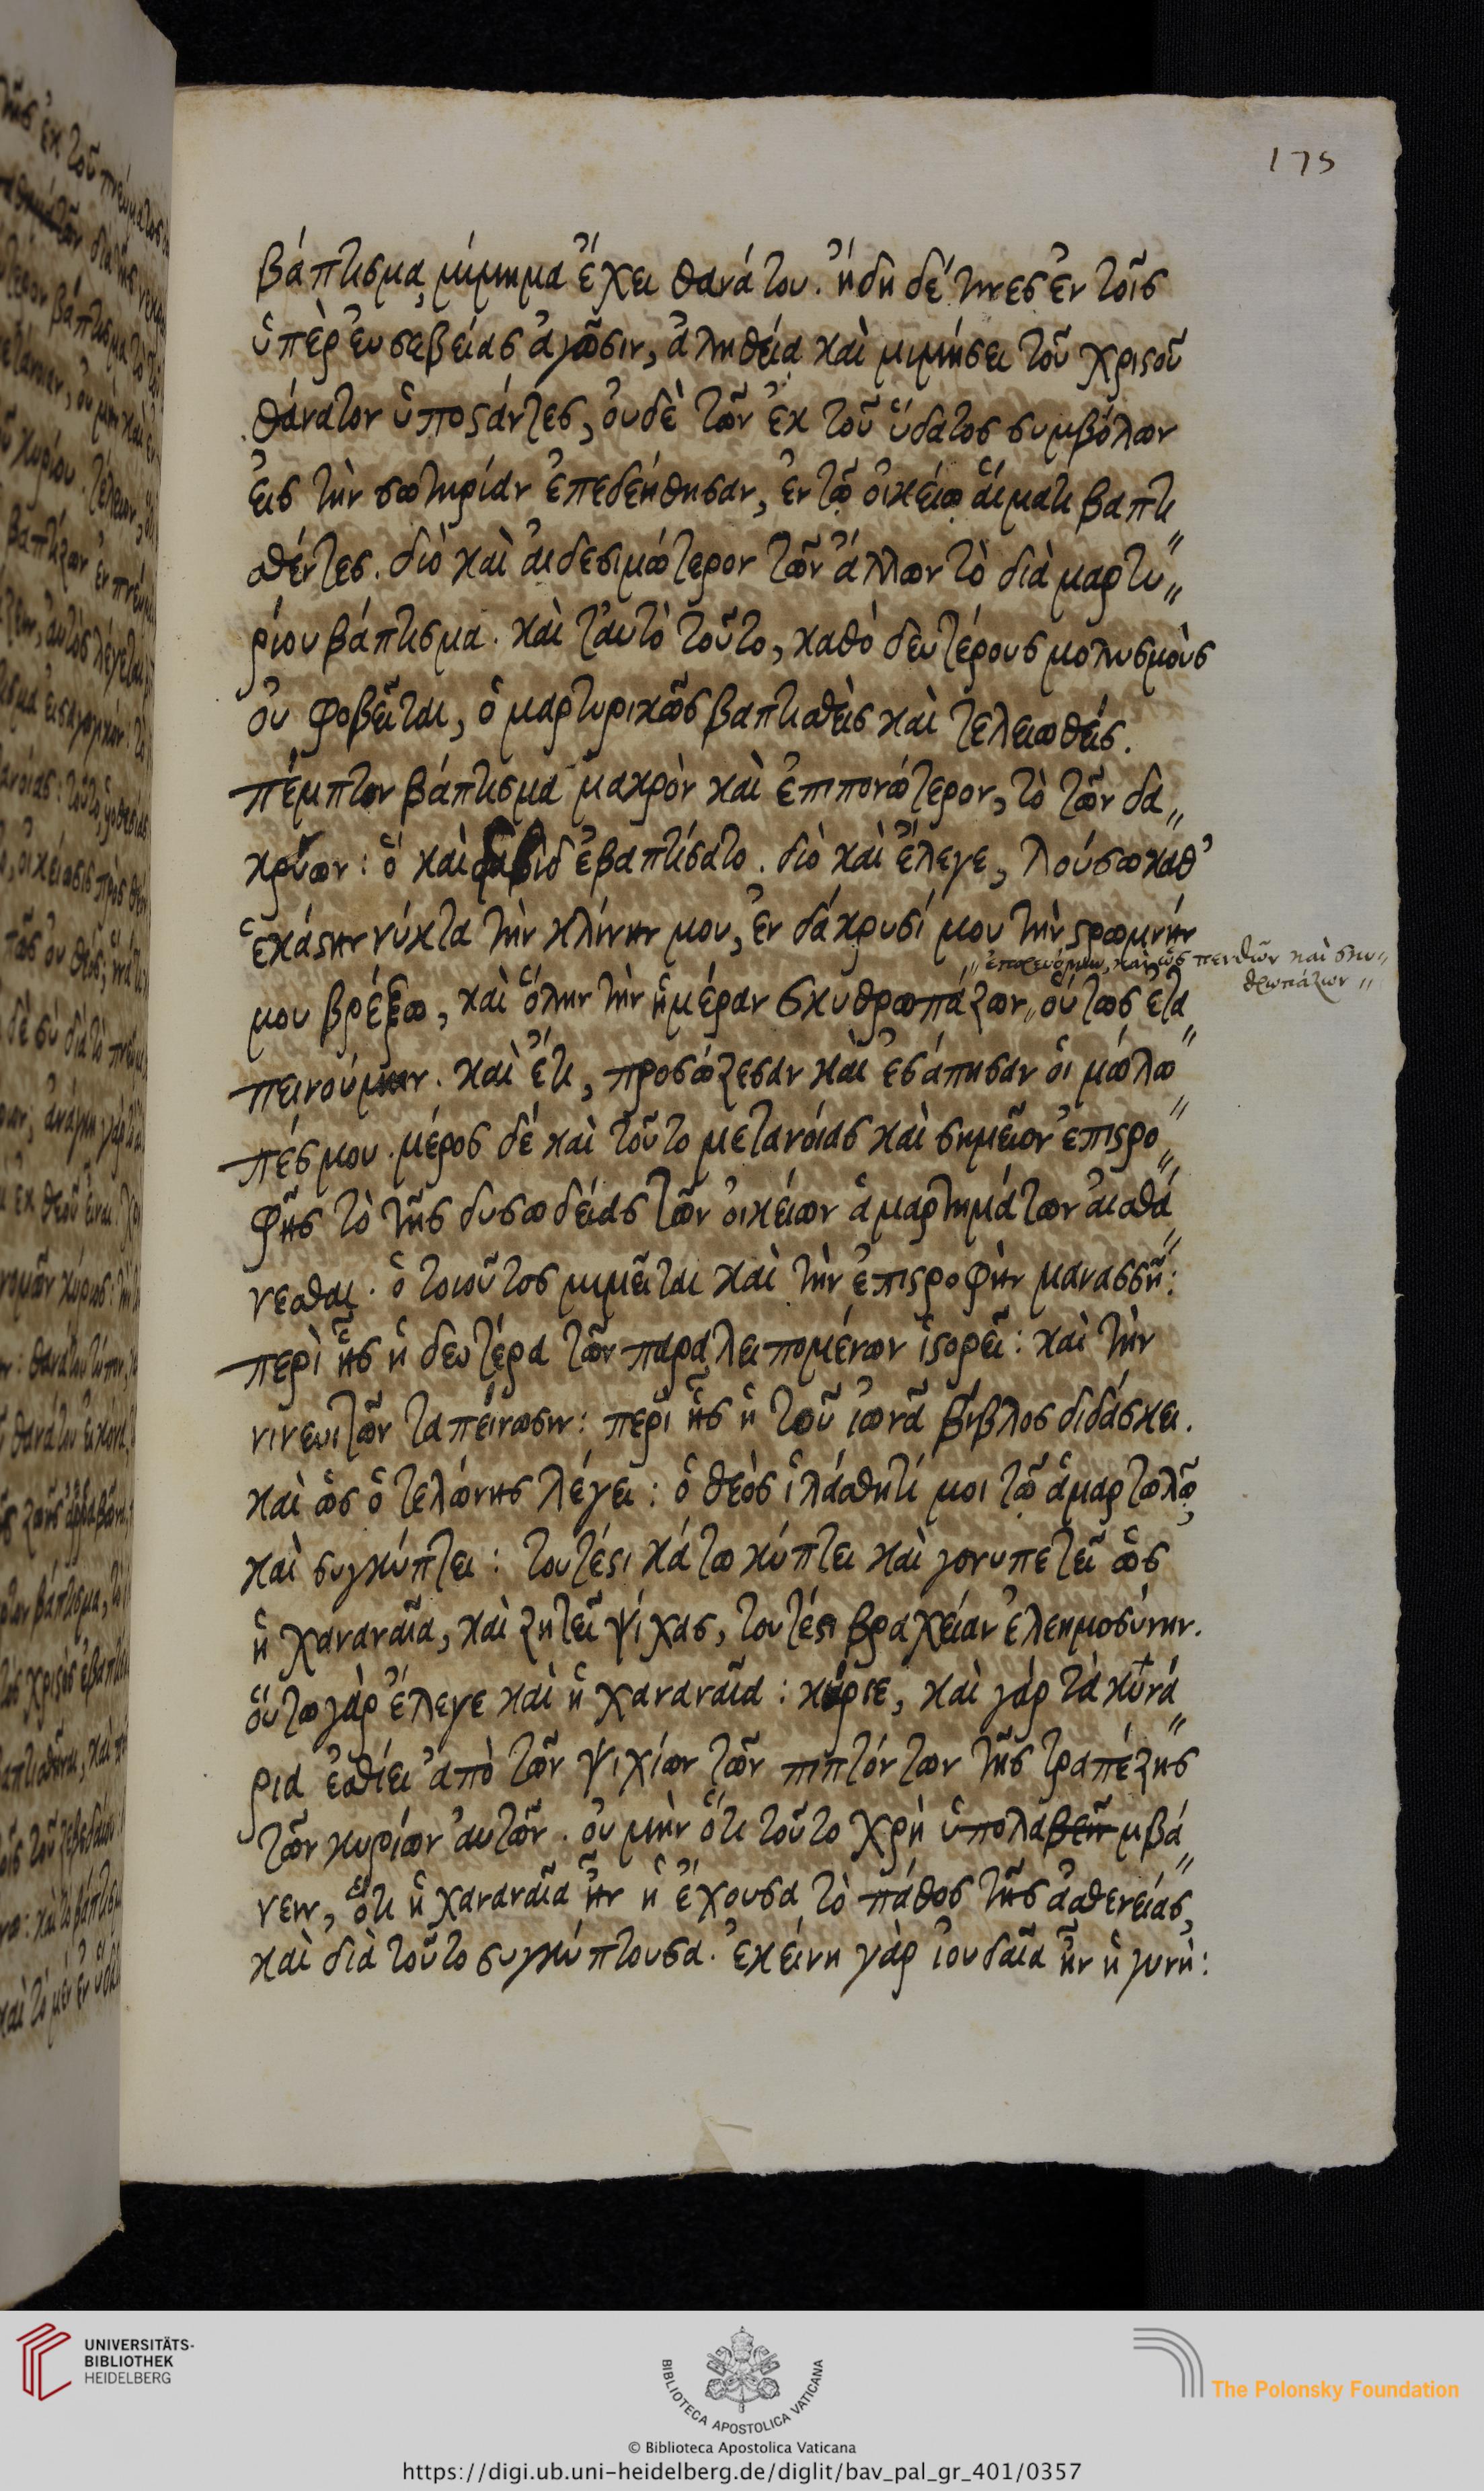 175
βάπτισμα, μίμημα ἔχει θανάτου. ἤδη δέ τινες ἐν τοῖς
ὑπὲρ εὐσεβείας ἀγῶσιν, ἀληθεία καὶ μιμήσει τοῦ χριστοῦ
θάνατον ὑποστάντες, οὐδὲ τῶν ἐκ τοῦ ὕδατος συμβόλων
εἰς τὴν σωτηρίαν ἐπεδεήθησαν, ἐν τῷ οἰκείῳ αἵματι βαπτι〃
σθέντες. διὸ καὶ αἰδεσιμώτερον τῶν ἄλλων τὸ διὰ μαρτυ〃
ρίου βάπτισμα. καὶ ταυτὸ τοῦτο, καθὸ δευτέρους μολυσμοὺς
οὐ φοβεῖται, ὁ μαρτυρικῶς βαπτισθεὶς καὶ τελειωθείς.
πέμπτον βάπτισμα μακρὸν καὶ ἐπιπονώτερον, τὸ τῶν δα〃
κρύων: ὃ καὶ δαβὶδ ἐβαπτίσατο. διὸ καὶ ἔλεγε, λούσω καθ᾽
ἑκάστην νύκτα τὴν κλίνην μου, ἐν δάκρυσί μου τὴν στρωμνήν
〃ἐπορευόμην, καὶ ὡς πενθῶν καὶ σκυ〃
θρωπάζων〃
μου βρέξω, καὶ ὅλην τὴν ἡμέραν σκυθρωπάζων〃οὕτως ἐτα〃
πεινούμην. καὶ ἔτι, προσώζεσαν καὶ ἐσάπησαν οἱ μώλω〃
πές μου. μέρος δέ καὶ τοῦτο μετανοίας καὶ σημεῖον ἐπιστρο〃
φῆς τὸ τῆς δυσωδείας τῶν οἰκείων ἁμαρτημάτων αἰσθά〃
νεσθαι. ὁ τοιοῦτος μιμεῖται καὶ τὴν ἐπιστροφὴν μανασσῆ:
περὶ ἧς ἡ δευτέρα τῶν παραλειπομένων ἱστορεῖ: καὶ τὴν
νινευιτῶν ταπείνωσιν: περὶ ἧς ἡ τοῦ ἰωνᾶ βίβλος διδάσκει.
καὶ ὡς ὁ τελώνης λέγει: ὁ θεὸς ἱλάσθητί μοι τῷ ἁμαρτωλῷ,
καὶ συγκύπτει: τουτέστι κάτω κύπτει καὶ γονυπετεῖ ὡς
ἡ χαναναῖα, καὶ ζητεῖ ψίχας, τουτέστι βραχεῖαν ἐλεημοσύνην.
οὕτω γὰρ ἔλεγε καὶ ἡ χαναναῖα: κύριε, καὶ γὰρ τὰ κυνά〃
ρια ἐσθίει ἀπὸ τῶν ψιχίων τῶν πιπτόντων τῆς τραπέζης
τῶν κυρίων αὐτῶν. οὐ μὴν ὅτι τοῦτο χρὴ ὑπολαβεῖν μβά〃
νειν, ὅτι ἡ χαναναῖα ἦν ἡ ἔχουσα τὸ πάθος τῆς ἀσθενείας,
καὶ διὰ τοῦτο συγκύπτουσα. ἐκείνη γὰρ ἰουδαῖα ἦν ἡ γυνὴ:
UNIVERSITÄTS-
BIBLIOTHEK
HEIDELBERG
BIBLIOTECA APOSTOLICA VATICANA
The Polonsky Foundation
© Biblioteca Apostolica Vaticana
https://digi.ub.uni-heidelberg.de/diglit/bav_pal_gr_401/0357